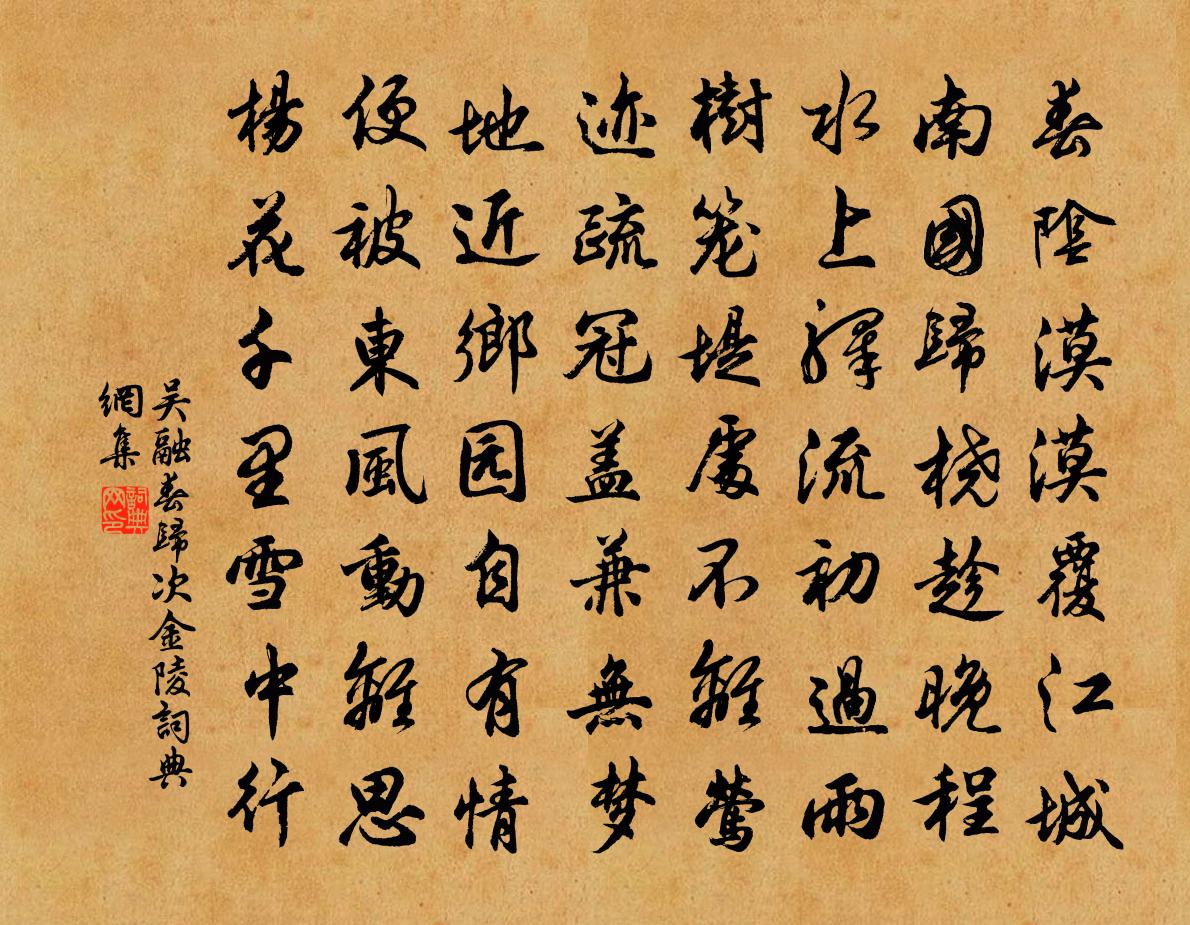 春陰漠漠覆江城
南國歸桡趁晚程
水上驛流初過雨
樹笼堤處不離鶯
迹疏冠盖兼無梦
地近鄉园自有情
便被東風動離思
楊花千里雪中行
吴融春歸次金陵詞典
網集
詞典
网印